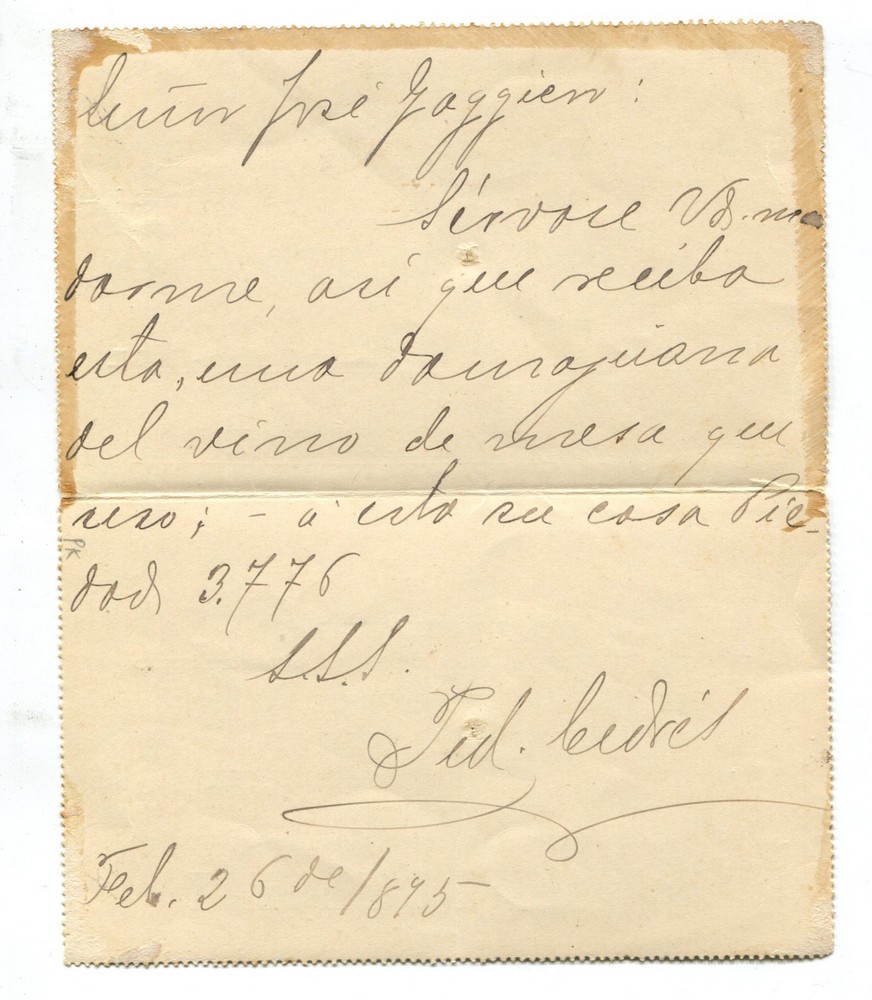 Señor José Jaggien:
Sírvase Vd. man
darme, así que reciba
esta, una damajuana
del vino de mesa que
uso; - á esta su casa Pie-
dad 3.776
S.S.S.
Fed. Cedrés
Feb. 26 de 1895
PK